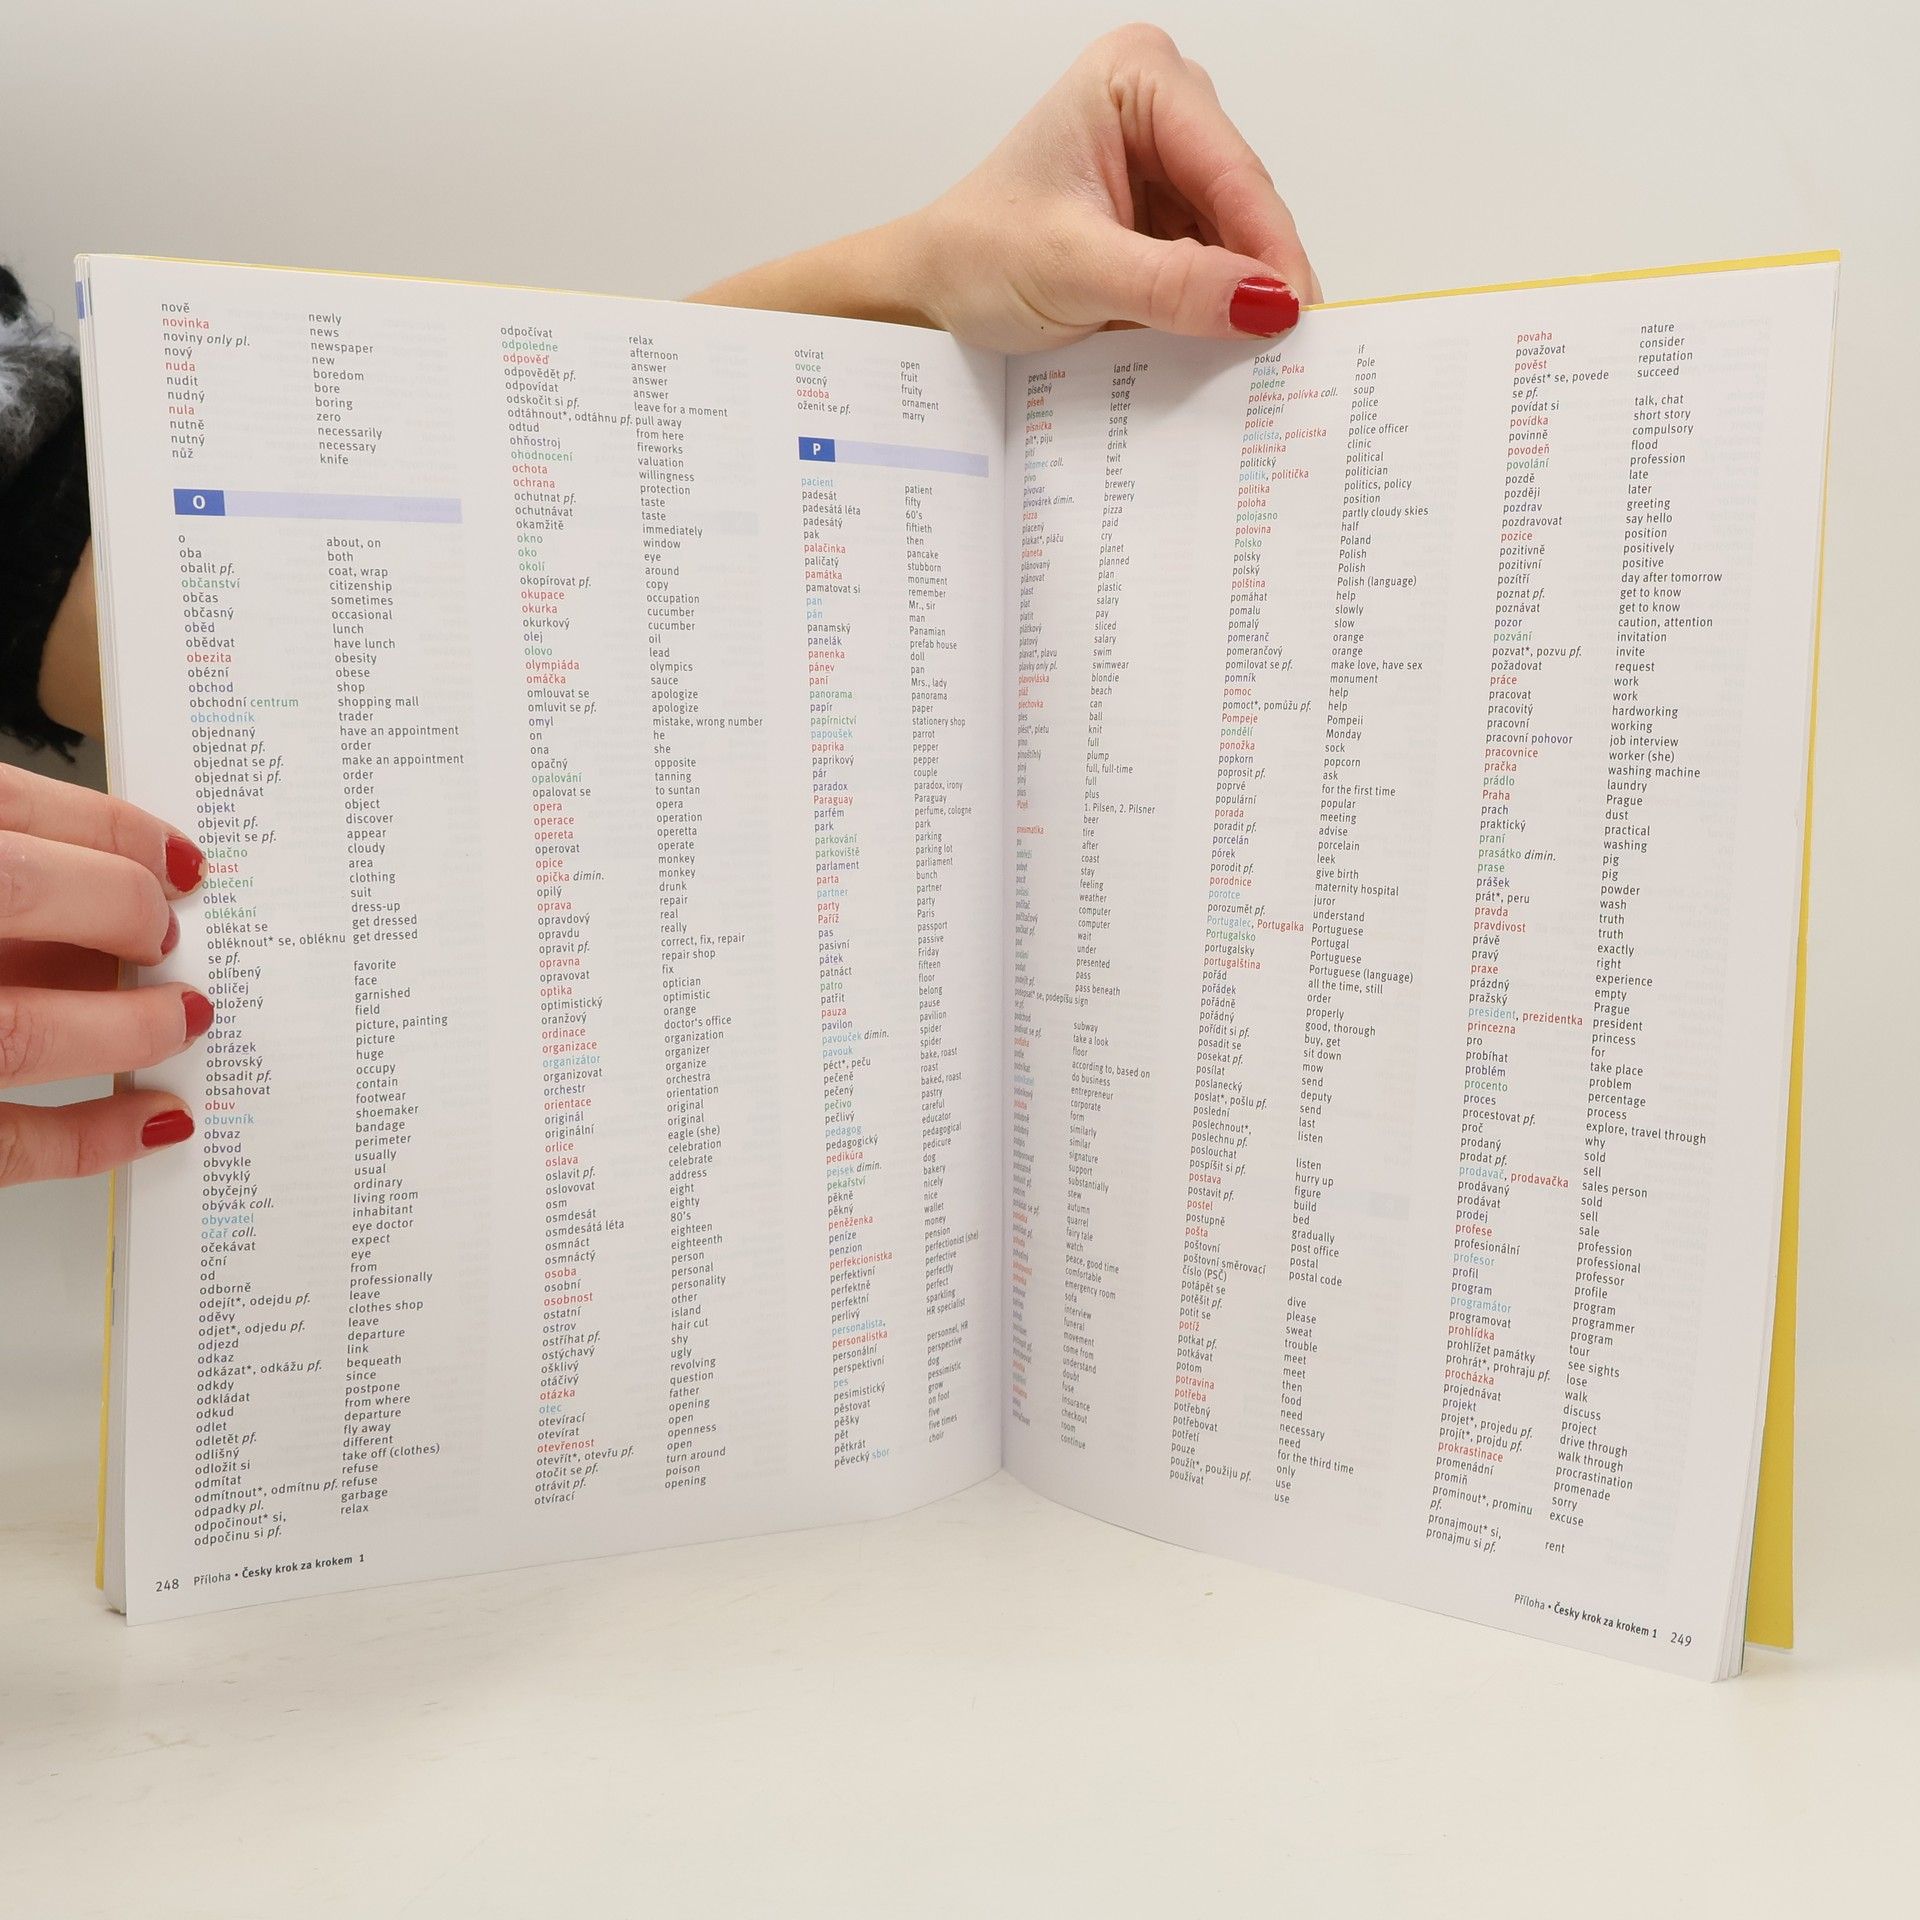 nově newly
novinka news
noviny only pl. newspaper
nový new
nuda boredom
nudit bore
nudný boring
nula zero
nutně necessarily
nutný necessary
nůž knife
O
o about, on
oba both
obalit pf. coat, wrap
občanství citizenship
občas sometimes
občasný occasional
oběd lunch
obědvat have lunch
obezita obesity
obézní obese
obchod shop
obchodní centrum shopping mall
obchodník trader
objednaný have an appointment
objednat pf. order
objednat se pf. make an appointment
objednat si pf. order
objednávat order
objekt object
objevit pf. discover
objevit se pf. appear
oblačno cloudy
oblast area
oblečení clothing
oblek suit
oblékání dress-up
oblékat se get dressed
obléknout* se, obléknu get dressed
se pf.
oblíbený favorite
obličej face
obložený garnished
obor field
obraz picture, painting
obrázek picture
obrovský huge
obsadit pf. occupy
obsahovat contain
obuv footwear
obuvník shoemaker
obvaz bandage
obvod perimeter
obvykle usually
obvyklý usual
obyčejný ordinary
obývák coll. living room
obyvatel inhabitant
očař coll. eye doctor
očekávat expect
oční eye
od from
odborně professionally
odejít*, odejdu pf. leave
oděvy clothes shop
odjet*, odjedu pf. leave
odjezd departure
odkaz link
odkázat*, odkážu pf. bequeath
odkdy since
odkládat postpone
odkud from where
odlet departure
odletět pf. fly away
odlišný different
odložit si take off (clothes)
odmítat refuse
odmítnout*, odmítnu pf. refuse
odpadky pl. garbage
odpočinout* si, relax
odpočinu si pf.
odpočívat relax
odpoledne afternoon
odpověď answer
odpovědět pf. answer
odpovídat answer
odskočit si pf. leave for a moment
odtáhnout*, odtáhnu pf. pull away
odtud from here
ohňostroj fireworks
ohodnocení valuation
ochota willingness
ochrana protection
ochutnat pf. taste
ochutnávat taste
okamžitě immediately
okno window
oko eye
okolí around
okopírovat pf. copy
okupace occupation
okurka cucumber
okurkový cucumber
olej oil
olovo lead
olympiáda olympics
omáčka sauce
omlouvat se apologize
omluvit se pf. apologize
omyl mistake, wrong number
on he
ona she
opačný opposite
opalování tanning
opalovat se to suntan
opera opera
operace operation
opereta operetta
operovat operate
opice monkey
opička dimin. monkey
opilý drunk
oprava repair
opravdový real
opravdu really
opravit pf. correct, fix, repair
opravna repair shop
opravovat fix
optika optician
optimistický optimistic
oranžový orange
ordinace doctor's office
organizace organization
organizátor organizer
organizovat organize
orchestr orchestra
orientace orientation
originál original
originální original
orlice eagle (she)
oslava celebration
oslavit pf. celebrate
oslovovat address
osm eight
osmdesát eighty
osmdesátá léta 80's
osmnáct eighteen
osmnáctý eighteenth
osoba person
osobní personal
osobnost personality
ostatní other
ostrov island
ostříhat pf. hair cut
ostýchavý shy
ošklivý ugly
otáčivý revolving
otázka question
otec father
otevírací opening
otevírat open
otevřenost openness
otevřít*, otevřu pf. open
otočit se pf. turn around
otrávit pf. poison
otvírací opening
otvírat open
ovoce fruit
ovocný fruity
ozdoba ornament
oženit se pf. marry
P
pacient patient
padesát fifty
padesátá léta 60's
padesátý fiftieth
pak then
palačinka pancake
paličatý stubborn
památka monument
pamatovat si remember
pan Mr., sir
pán man
panamský Panamian
panelák prefab house
panenka doll
pánev pan
paní Mrs., lady
panorama panorama
papír paper
papírnictví stationery shop
papoušek parrot
paprika pepper
paprikový pepper
pár couple
paradox paradox, irony
Paraguay Paraguay
parfém perfume, cologne
park park
parkování parking
parkoviště parking lot
parlament parliament
parta bunch
partner partner
party party
Paříž Paris
pas passport
pasivní passive
pátek Friday
patnáct fifteen
patro floor
patřit belong
pauza pause
pavilon pavilion
pavouček dimin. spider
pavouk spider
péct*, peču bake, roast
pečeně roast
pečený baked, roast
pečivo pastry
pečlivý careful
pedagog educator
pedagogický pedagogical
pedikúra pedicure
pejsek dimin. dog
pekařství bakery
pěkně nicely
pěkný nice
peněženka wallet
peníze money
penzion pension
perfekcionistka perfectionist (she)
perfektivní perfective
perfektně perfectly
perfektní perfect
perlivý sparkling
personalista, HR specialist
personalistka
personální personnel, HR
perspektivní perspective
pes dog
pesimistický pessimistic
pěstovat grow
pěšky on foot
pět five
pětkrát five times
pěvecký sbor choir
248 Příloha • Česky krok za krokem 1
pevná linka land line
písečný sandy
píseň song
písmeno letter
písnička song
pít*, piju drink
pití drink
pitomec coll. twit
pivo beer
pivovar brewery
pivovárek dimin. brewery
pizza pizza
placený paid
plakat*, pláču cry
planeta planet
plánovaný planned
plánovat plan
plast plastic
plat salary
platit pay
plátkový sliced
platový salary
plavat*, plavu swim
plavky only pl. swimwear
plavovláska blondie
pláž beach
plechovka can
ples ball
plést*, pletu knit
plno full
plnoštíhlý plump
plný full, full-time
plný full
plus plus
Plzeň 1. Pilsen, 2. Pilsner
beer
pneumatika tire
po after
pobřeží coast
pobyt stay
pocit feeling
počasí weather
počítač computer
počítačový computer
počkat pf. wait
pod under
presented
pass
pass beneath
podepsat* se, podepíšu sign
se pf.
subway
take a look
floor
according to, based on
do business
entrepreneur
corporate
form
similarly
similar
signature
support
substantially
stew
autumn
quarrel
fairy tale
watch
peace, good time
comfortable
emergency room
sofa
interview
funeral
movement
come from
understand
doubt
fuse
insurance
checkout
room
continue
pokud if
Polák, Polka Pole
poledne noon
polévka, polívka coll. soup
policejní police
policie police
policista, policistka police officer
poliklinika clinic
politický political
politik, politička politician
politika politics, policy
poloha position
polojasno partly cloudy skies
polovina half
Polsko Poland
polsky Polish
polský Polish
polština Polish (language)
pomáhat help
pomalu slowly
pomalý slow
pomeranč orange
pomerančový orange
pomilovat se pf. make love, have sex
pomník monument
pomoc help
pomoct*, pomůžu pf. help
Pompeje Pompeii
pondělí Monday
ponožka sock
popkorn popcorn
poprosit pf. ask
poprvé for the first time
populární popular
porada meeting
poradit pf. advise
porcelán porcelain
pórek leek
porodit pf. give birth
porodnice maternity hospital
porotce juror
porozumět pf. understand
Portugalec, Portugalka Portuguese
Portugalsko Portugal
portugalsky Portuguese
portugalština Portuguese (language)
pořád all the time, still
pořádek order
pořádně properly
pořádný good, thorough
pořídit si pf. buy, get
posadit se sit down
posekat pf. mow
posílat send
poslanecký deputy
poslat*, pošlu pf. send
poslední last
poslechnout*, listen
poslechnu pf.
poslouchat listen
pospíšit si pf. hurry up
postava figure
postavit pf. build
postel bed
postupně gradually
pošta post office
poštovní postal
poštovní směrovací postal code
číslo (PSČ)
potápět se dive
potěšit pf. please
potit se sweat
potíž trouble
potkat pf. meet
potkávat meet
potom then
potravina food
potřeba need
potřebný necessary
potřebovat need
potřetí for the third time
pouze only
použít*, použiju pf. use
používat use
povaha nature
považovat consider
pověst reputation
povést* se, povede succeed
se pf.
povídat si talk, chat
povídka short story
povinně compulsory
povodeň flood
povolání profession
pozdě late
později later
pozdrav greeting
pozdravovat say hello
pozice position
pozitivně positively
pozitivní positive
pozítří day after tomorrow
poznat pf. get to know
poznávat get to know
pozor caution, attention
pozvání invitation
pozvat*, pozvu pf. invite
požadovat request
práce work
pracovat work
pracovitý hardworking
pracovní working
pracovní pohovor job interview
pracovnice worker (she)
pračka washing machine
prádlo laundry
Praha Prague
prach dust
praktický practical
praní washing
prasátko dimin. pig
prase pig
prášek powder
prát*, peru wash
pravda truth
pravdivost truth
právě exactly
pravý right
praxe experience
prázdný empty
pražský Prague
president, prezidentka president
princezna princess
pro for
probíhat take place
problém problem
procento percentage
proces process
procestovat pf. explore, travel through
proč why
prodaný sold
prodat pf. sell
prodavač, prodavačka sales person
prodávaný sold
prodávat sell
prodej sale
profese profession
profesionální professional
profesor professor
profil profile
program program
programátor programmer
programovat program
prohlídka tour
prohlížet památky see sights
prohrát*, prohraju pf. lose
procházka walk
projednávat discuss
projekt project
projet*, projedu pf. drive through
projít*, projdu pf. walk through
prokrastinace procrastination
promenádní promenade
promiň sorry
prominout*, prominu excuse
pf.
pronajmout* si, rent
pronajmu si pf.
Příloha • Česky krok za krokem 1 249